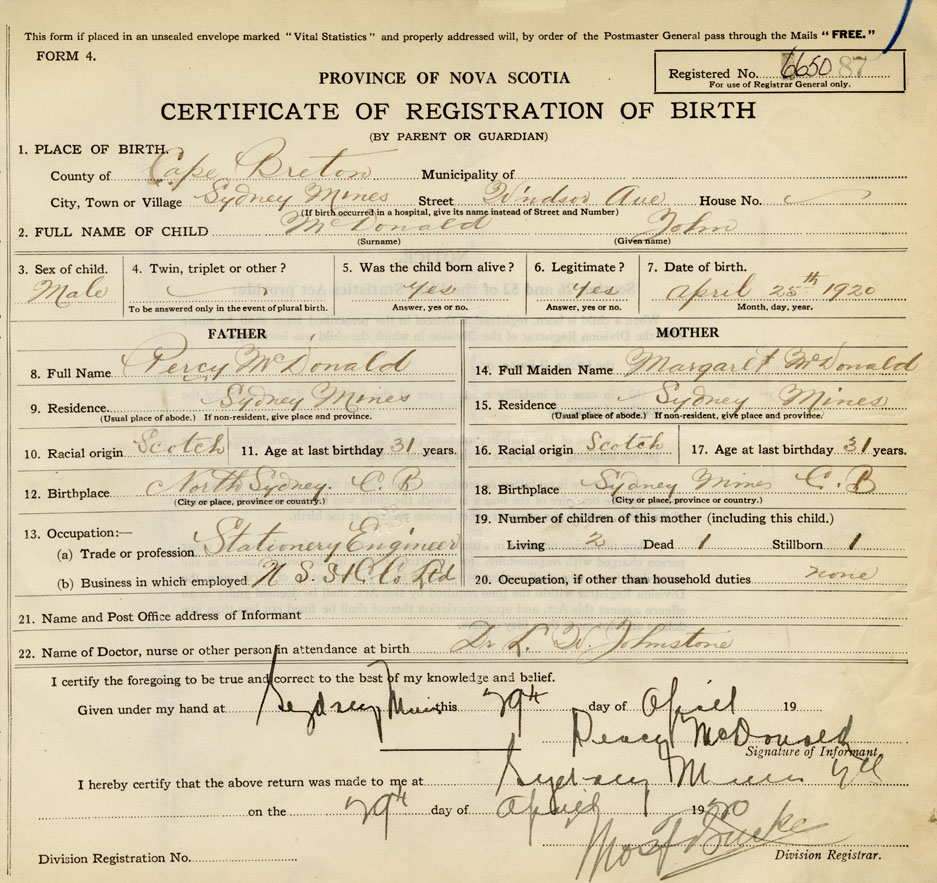 This form if placed in an unsealed envelope marked "Vital Statistics" and properly addressed will, by order of the Postmaster General pass through the Mails "FREE."
FORM 4.
Registered No. 6650 87
For use of Registrar General only.
PROVINCE OF NOVA SCOTIA
CERTIFICATE OF REGISTRATION OF BIRTH
(BY PARENT OR GUARDIAN)
1. PLACE OF BIRTH.
County of Cape Breton Municipality of
City, Town or Village Sydney Mines Street Windsor Ave House No.
(If birth occurred in a hospital, give its name instead of Street and Number)
2. FULL NAME OF CHILD McDonald John
(Surname) (Given name)
3. Sex of child. 4. Twin, triplet or other? 5. Was the child born alive? 6. Legitimate? 7. Date of birth.
Male yes yes April 25th 1920
To be answered only in the event of plural birth. Answer, yes or no. Answer, yes or no. Month, day, year.
FATHER MOTHER
8. Full Name Percy McDonald 14. Full Maiden Name Margaret McDonald
9. Residence. Sydney Mines 15. Residence Sydney Mines
(Usual place of abode.) If non-resident, give place and province. (Usual place of abode.) If non-resident, give place and province.
10. Racial origin Scotch 11. Age at last birthday 31 years. 16. Racial origin Scotch 17. Age at last birthday 31 years.
12. Birthplace North Sydney. C. B 18. Birthplace Sydney Mines C. B
(City or place, province or country.) (City or place, province or country.)
13. Occupation:— 19. Number of children of this mother (including this child.)
(a) Trade or profession Stationery Engineer Living 2 Dead 1 Stillborn 1
(b) Business in which employed N. S. S & C Co Ltd 20. Occupation, if other than household duties none
21. Name and Post Office address of Informant
22. Name of Doctor, nurse or other person in attendance at birth Dr L. W. Johnstone
I certify the foregoing to be true and correct to the best of my knowledge and belief.
Given under my hand at Sydney Mines this 29th day of April 19
Percy McDonald
Signature of Informant.
I hereby certify that the above return was made to me at Sydney Mines
on the 29th day of April 1920
Burke
Division Registration No. Division Registrar.